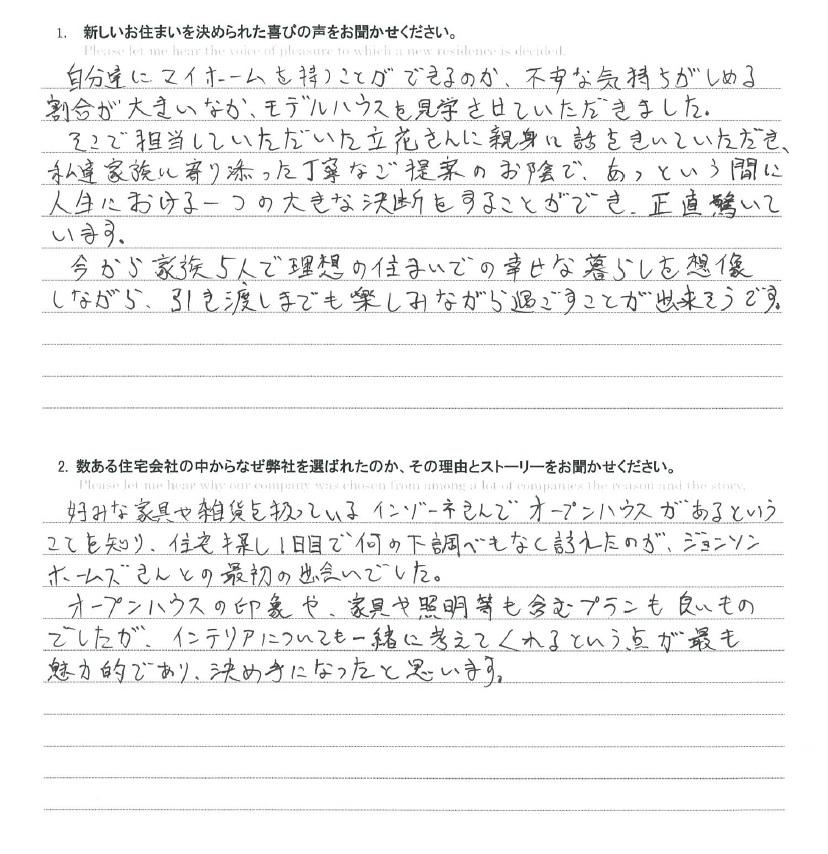 1. 新しいお住まいを決められた喜びの声をお聞かせください。
Please let me hear the voice of pleasure to which a new residence is decided.
自分達にマイホームを持つことができるのか、不安な気持ちがしめる
割合が大きいなか、モデルハウスを見学させていただきました。
そこで担当していただいた立花さんに親身に話をきいていただき、
私達家族に寄り添った丁寧なご提案のお陰で、あっという間に
人生における一つの大きな決断をすることができ、正直驚いて
います。
今から家族5人で理想の住まいでの幸せな暮らしを想像
しながら、引き渡しまでも楽しみながら過ごすことが出来そうです。
2. 数ある住宅会社の中からなぜ弊社を選ばれたのか、その理由とストーリーをお聞かせください。
Please let me hear why our company was chosen from among a lot of companies the reason and the story.
好みな家具や雑貨を扱っているインゾーネさんでオープンハウスがあるという
ことを知り、住宅探し1日目で何の下調べもなく訪れたのが、ジョンソン
ホームズさんとの最初の出会いでした。
オープンハウスの印象や、家具や照明等も含むプランも良いもの
でしたが、インテリアについても一緒に考えてくれるという点が最も
魅力的であり、決め手になったと思います。